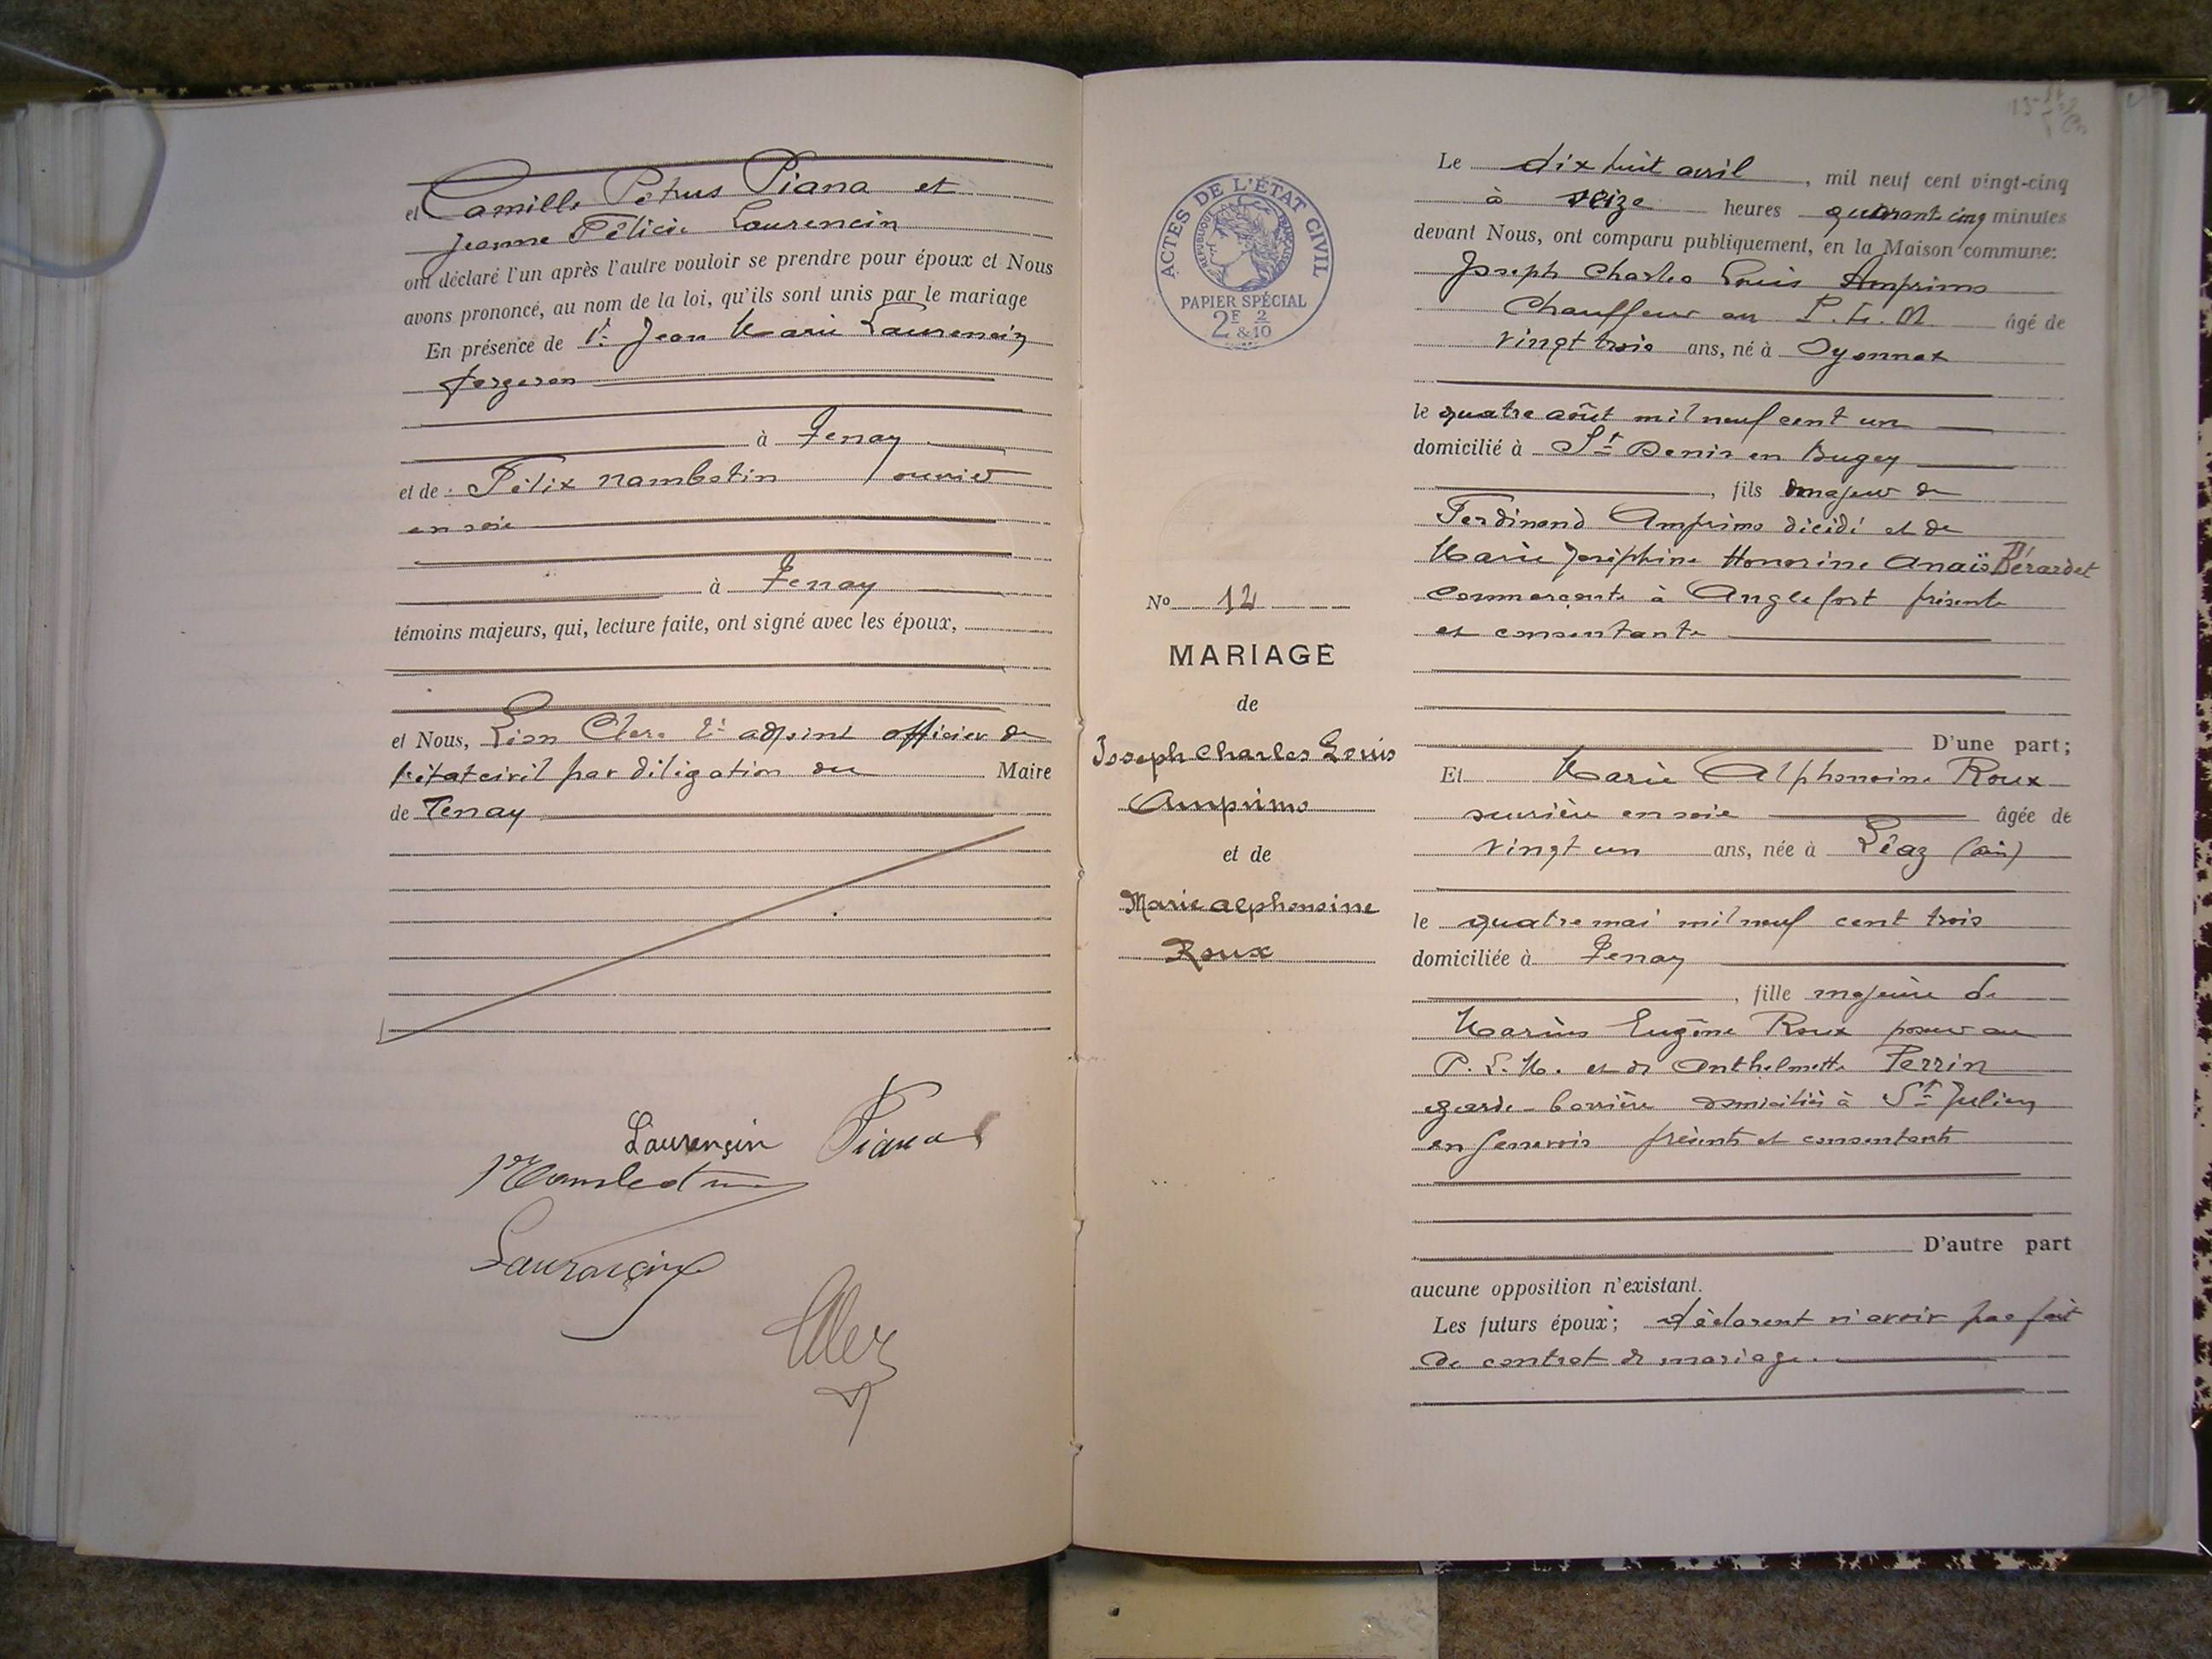 et Camille Pétrus Piana et
Jeanne Félicie Laurencin
ont déclaré l'un après l'autre vouloir se prendre pour époux et Nous
avons prononcé, au nom de la loi, qu'ils sont unis par le mariage
En présence de Jean Marie Laurencin
forgeron
à Tenay
et de Félix Nambotin ouvrier
en soie
à Tenay
témoins majeurs, qui, lecture faite, ont signé avec les époux,
et Nous, Léon Clerc adjoint officier de
l'état civil par déligation du Maire
de Tenay
Laurençin Piana
Laurençin
ACTES DE L'ÉTAT CIVIL
RÉPUBLIQUE FRANÇAISE
PAPIER SPÉCIAL
2F 2
& 10
No 12
MARIAGE
de
Joseph Charles Louis
Amprimo
et de
Marie Alphonsine
Roux
Le dix huit avril, mil neuf cent vingt-cinq
à seize heures quarante cinq minutes
devant Nous, ont comparu publiquement, en la Maison commune:
Joseph Charles Louis Amprimo
Chauffeur au P. L. M âgé de
vingt trois ans, né à Oyonnax
le quatre août mil neuf cent un
domicilié à St Denis en Bugey
, fils majeur de
Ferdinand Amprimo décédé et de
Marie Joséphine Honorine Anaïs Bérardet
commerçante à Anglefort présente
et consentante
D'une part;
Et Marie Alphonsine Roux
ouvrière en soie âgée de
vingt un ans, née à Léaz (ain)
le quatre mai mil neuf cent trois
domiciliée à Tenay
, fille majeure de
Marius Eugène Roux poseur au
P. L. M. et de Anthelmette Perrin
garde-barrière domiciliés à St Julien
en Genevois présents et consentants
D'autre part
aucune opposition n'existant.
Les futurs époux; déclarent n'avoir pas fait
de contrat de mariage.